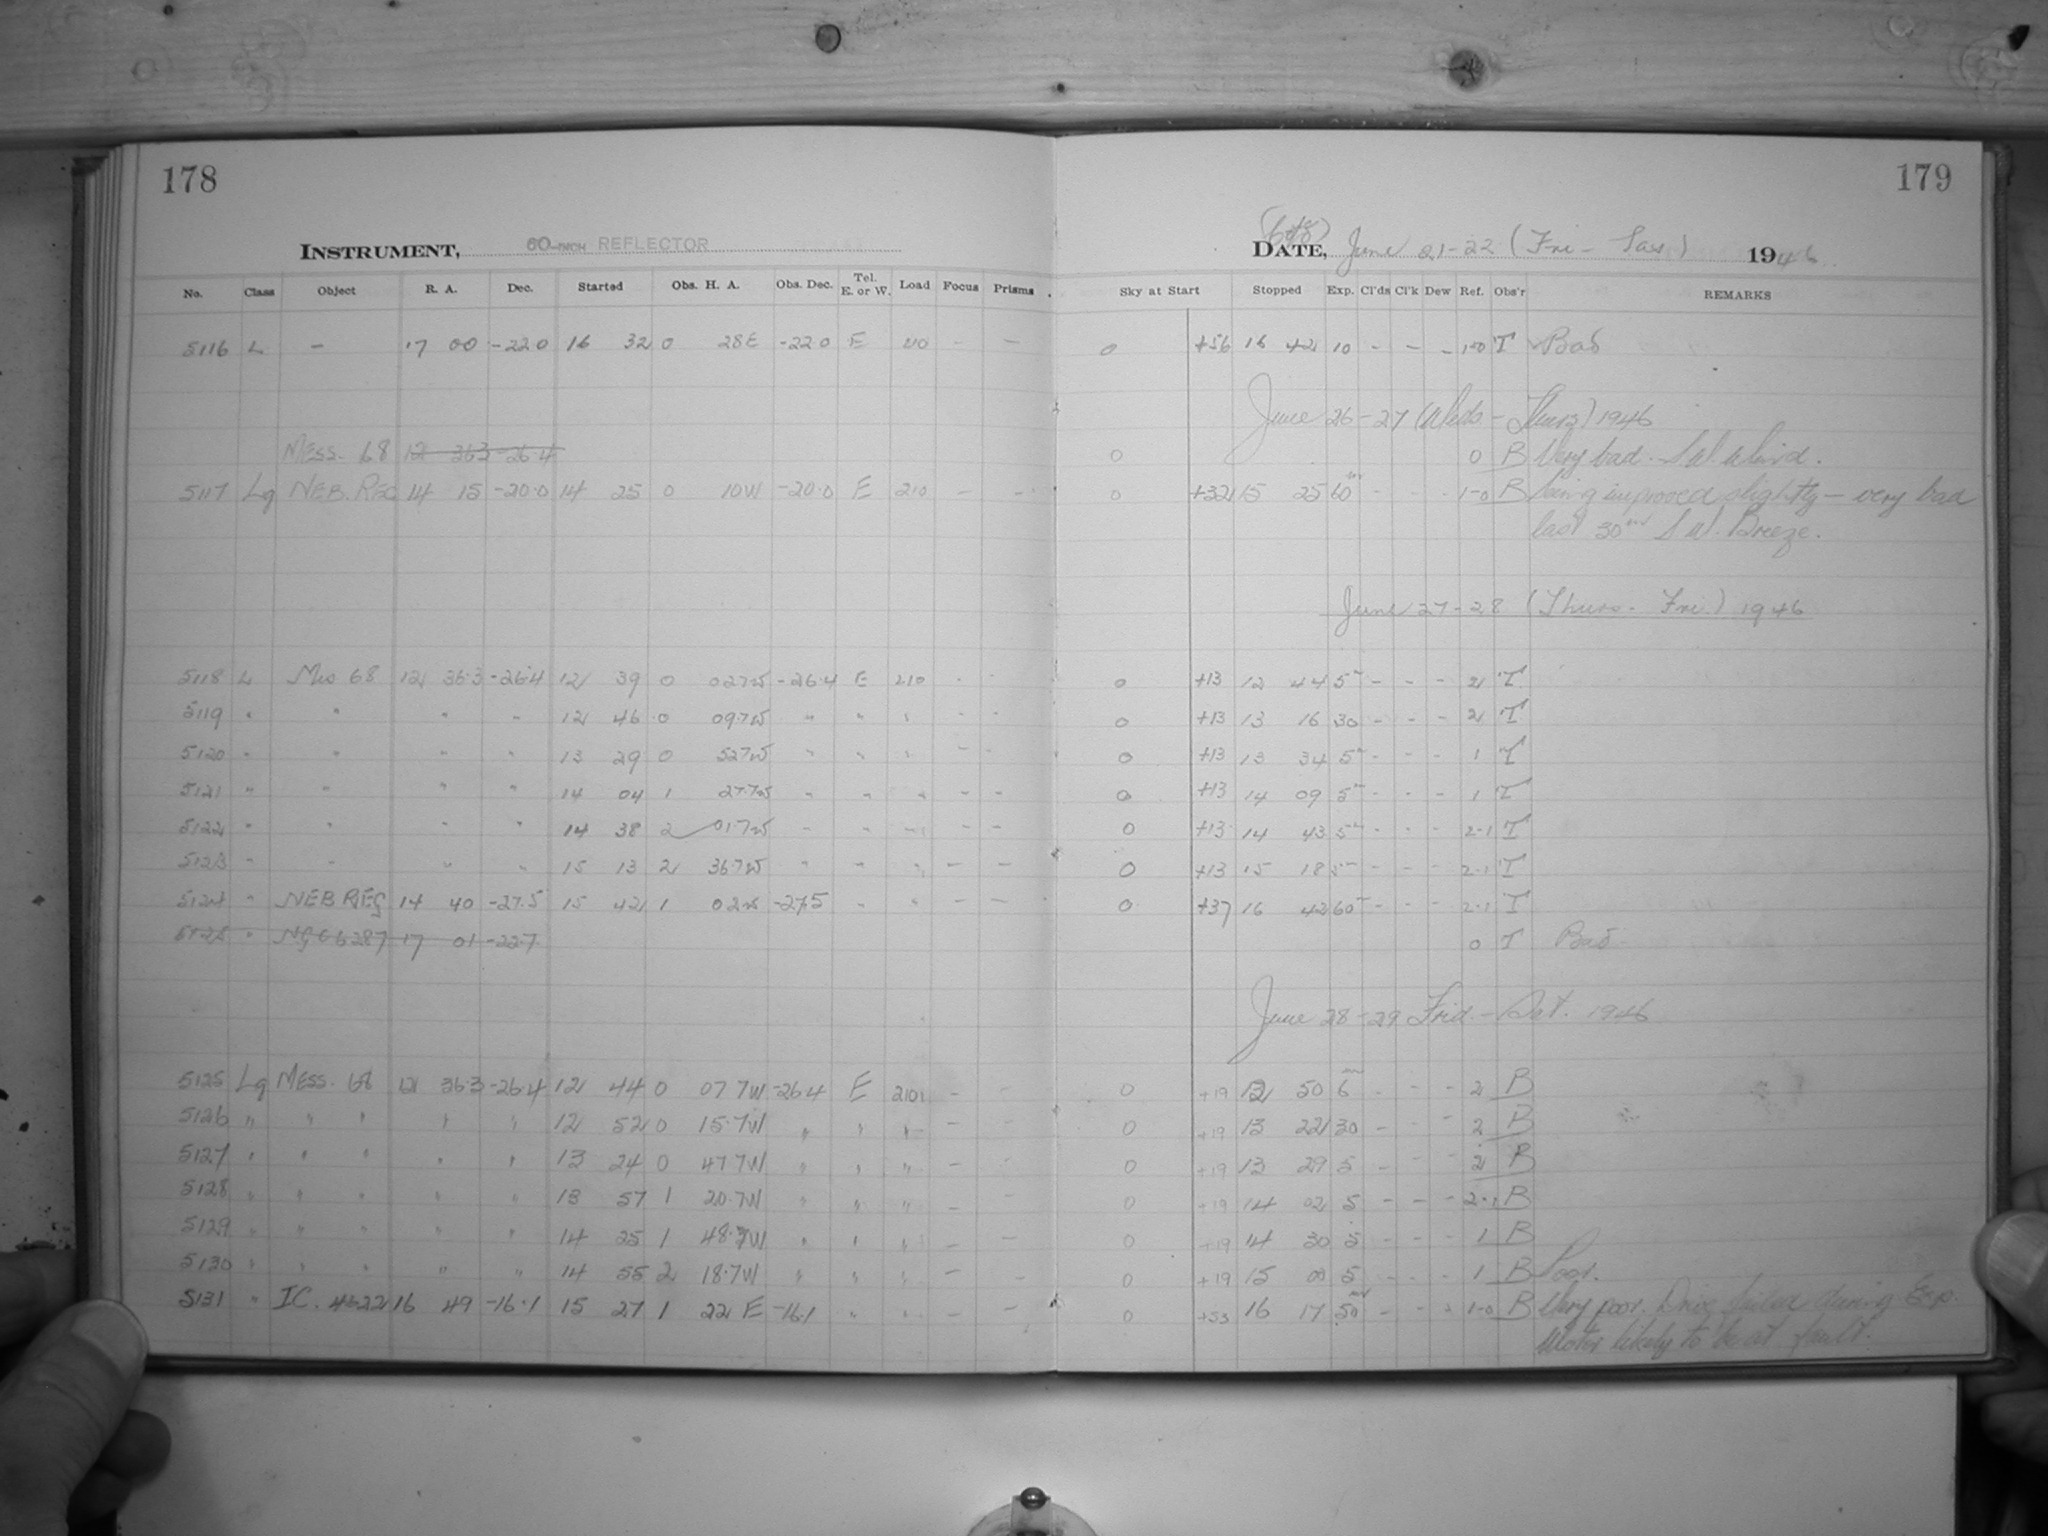 178
179
INSTRUMENT, 60-INCH REFLECTOR
DATE, June 21-22 (Fri - Sat) 1946
No. Class Object R. A. Dec. Started Obs. H. A. Obs. Dec. Tel. E. or W. Load Focus Prisms Sky at Start Stopped Exp. Cl'ds Cl'k Dew Ref. Obs'r REMARKS
5116 L - 17 00 -22.0 16 32 0 28E -22.0 E 210 - - 0 +56 16 42 10 - - - 1-0 T Bad
June 26-27 (Weds - Thurs) 1946
MESS. 68 12 36.3 -26.4 0 0 B Very bad. S.W. Wind.
5117 Lg NEB. REG 14 15 -20.0 14 25 0 10W -20.0 E 210 - - 0 +32 15 25 60m - - - 1-0 B Seeing improved slightly - very bad
last 30m S.W. Breeze.
June 27-28 (Thurs - Fri.) 1946
5118 L Mes 68 12 36.3 -26.4 12 39 0 02.7W -26.4 E 210 - - 0 +13 12 44 5m - - - 2 T
5119 " " " " 12 46 0 09.7W " " " - - 0 +13 13 16 30 - - - 2 T
5120 " " " " 13 29 0 52.7W " " " - - 0 +13 13 34 5m - - - 1 T
5121 " " " " 14 04 1 27.7W " " " - - 0 +13 14 09 5m - - - 1 T
5122 " " " " 14 38 2 01.7W " " " - - 0 +13 14 43 5m - - - 2-1 T
5123 " " " " 15 13 2 36.7W " " " - - 0 +13 15 18 5m - - - 2-1 T
5124 " NEB REG 14 40 -27.5 15 42 1 02W -27.5 " " - - 0 +37 16 42 60m - - - 2-1 T
5125 " NGC 6287 17 01 -22.7 0 T Bad
June 28-29 Frid. - Sat. 1946
5125 Lg MESS. 68 12 36.3 -26.4 12 44 0 07.7W -26.4 E 210 - - 0 +19 12 50 6m - - - 2 B
5126 " " " " " 12 52 0 15.7W " " " - - 0 +19 13 22 30 - - - 2 B
5127 " " " " " 13 24 0 47.7W " " " - - 0 +19 13 29 5 - - - 2 B
5128 " " " " " 13 57 1 20.7W " " " - - 0 +19 14 02 5 - - - 2-1 B
5129 " " " " " 14 25 1 48.7W " " " - - 0 +19 14 30 5 - - - 1 B
5130 " " " " " 14 55 2 18.7W " " " - - 0 +19 15 00 5 - - - 1 B Poor.
5131 " IC. 4622 16 49 -16.1 15 27 1 22 E -16.1 " " " - 0 +53 16 17 50m - - - 1-0 B Very poor. Drive failed during Exp.
Motor likely to be at fault.